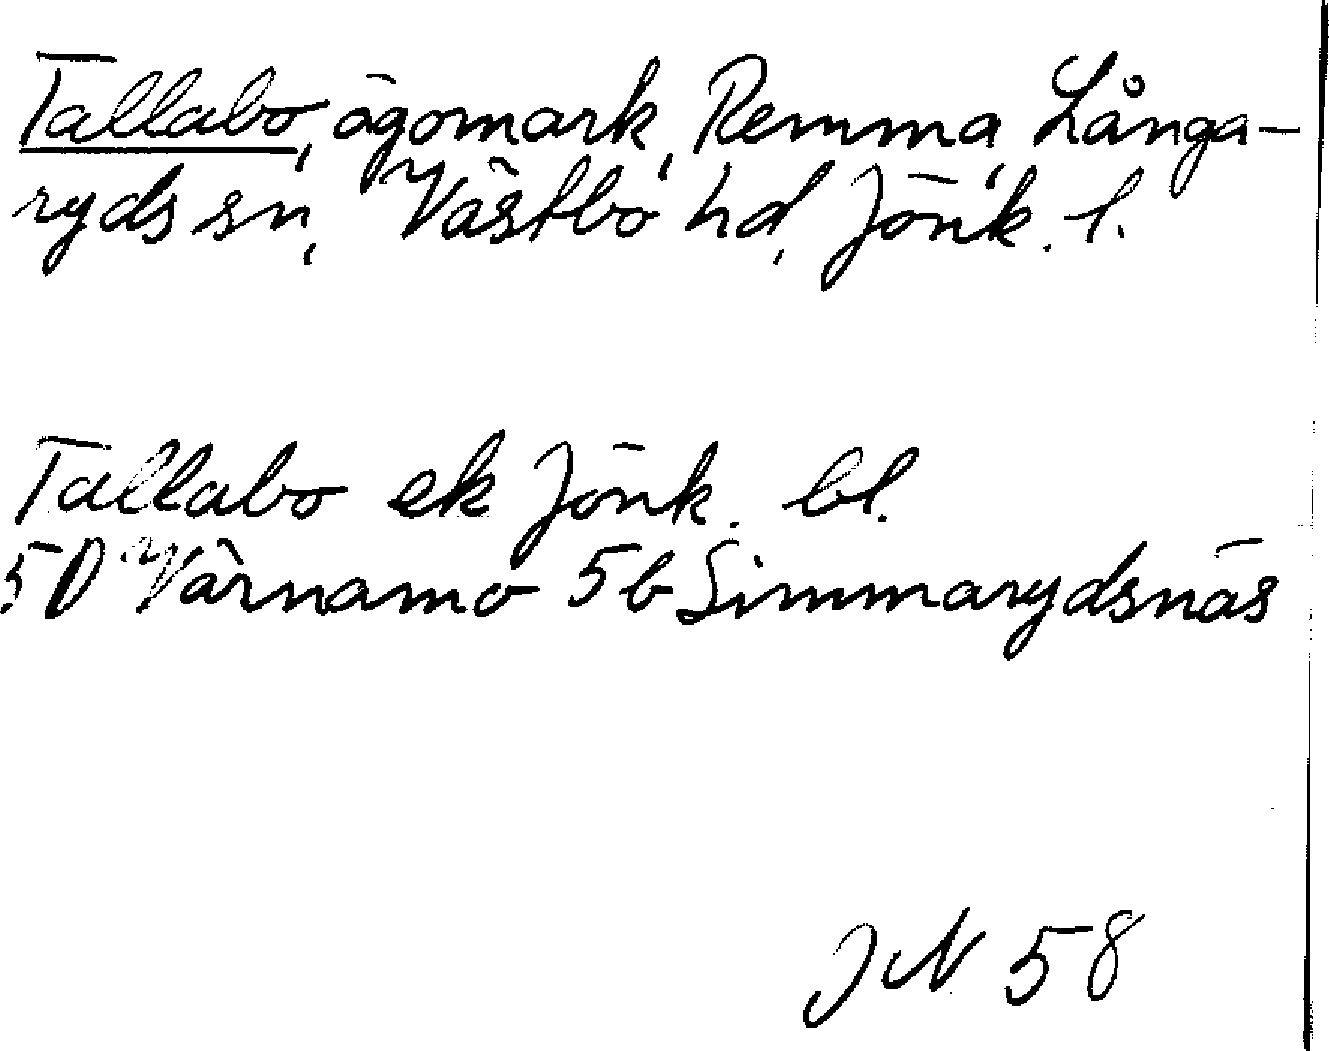 Tallabo, ägomark, Remma, Långa-
ryds sn, Västbo hd, Jönk. l.
Tallabo ek Jönk. bl.
5D Värnamo 5b Simmarydsnäs
JN 58